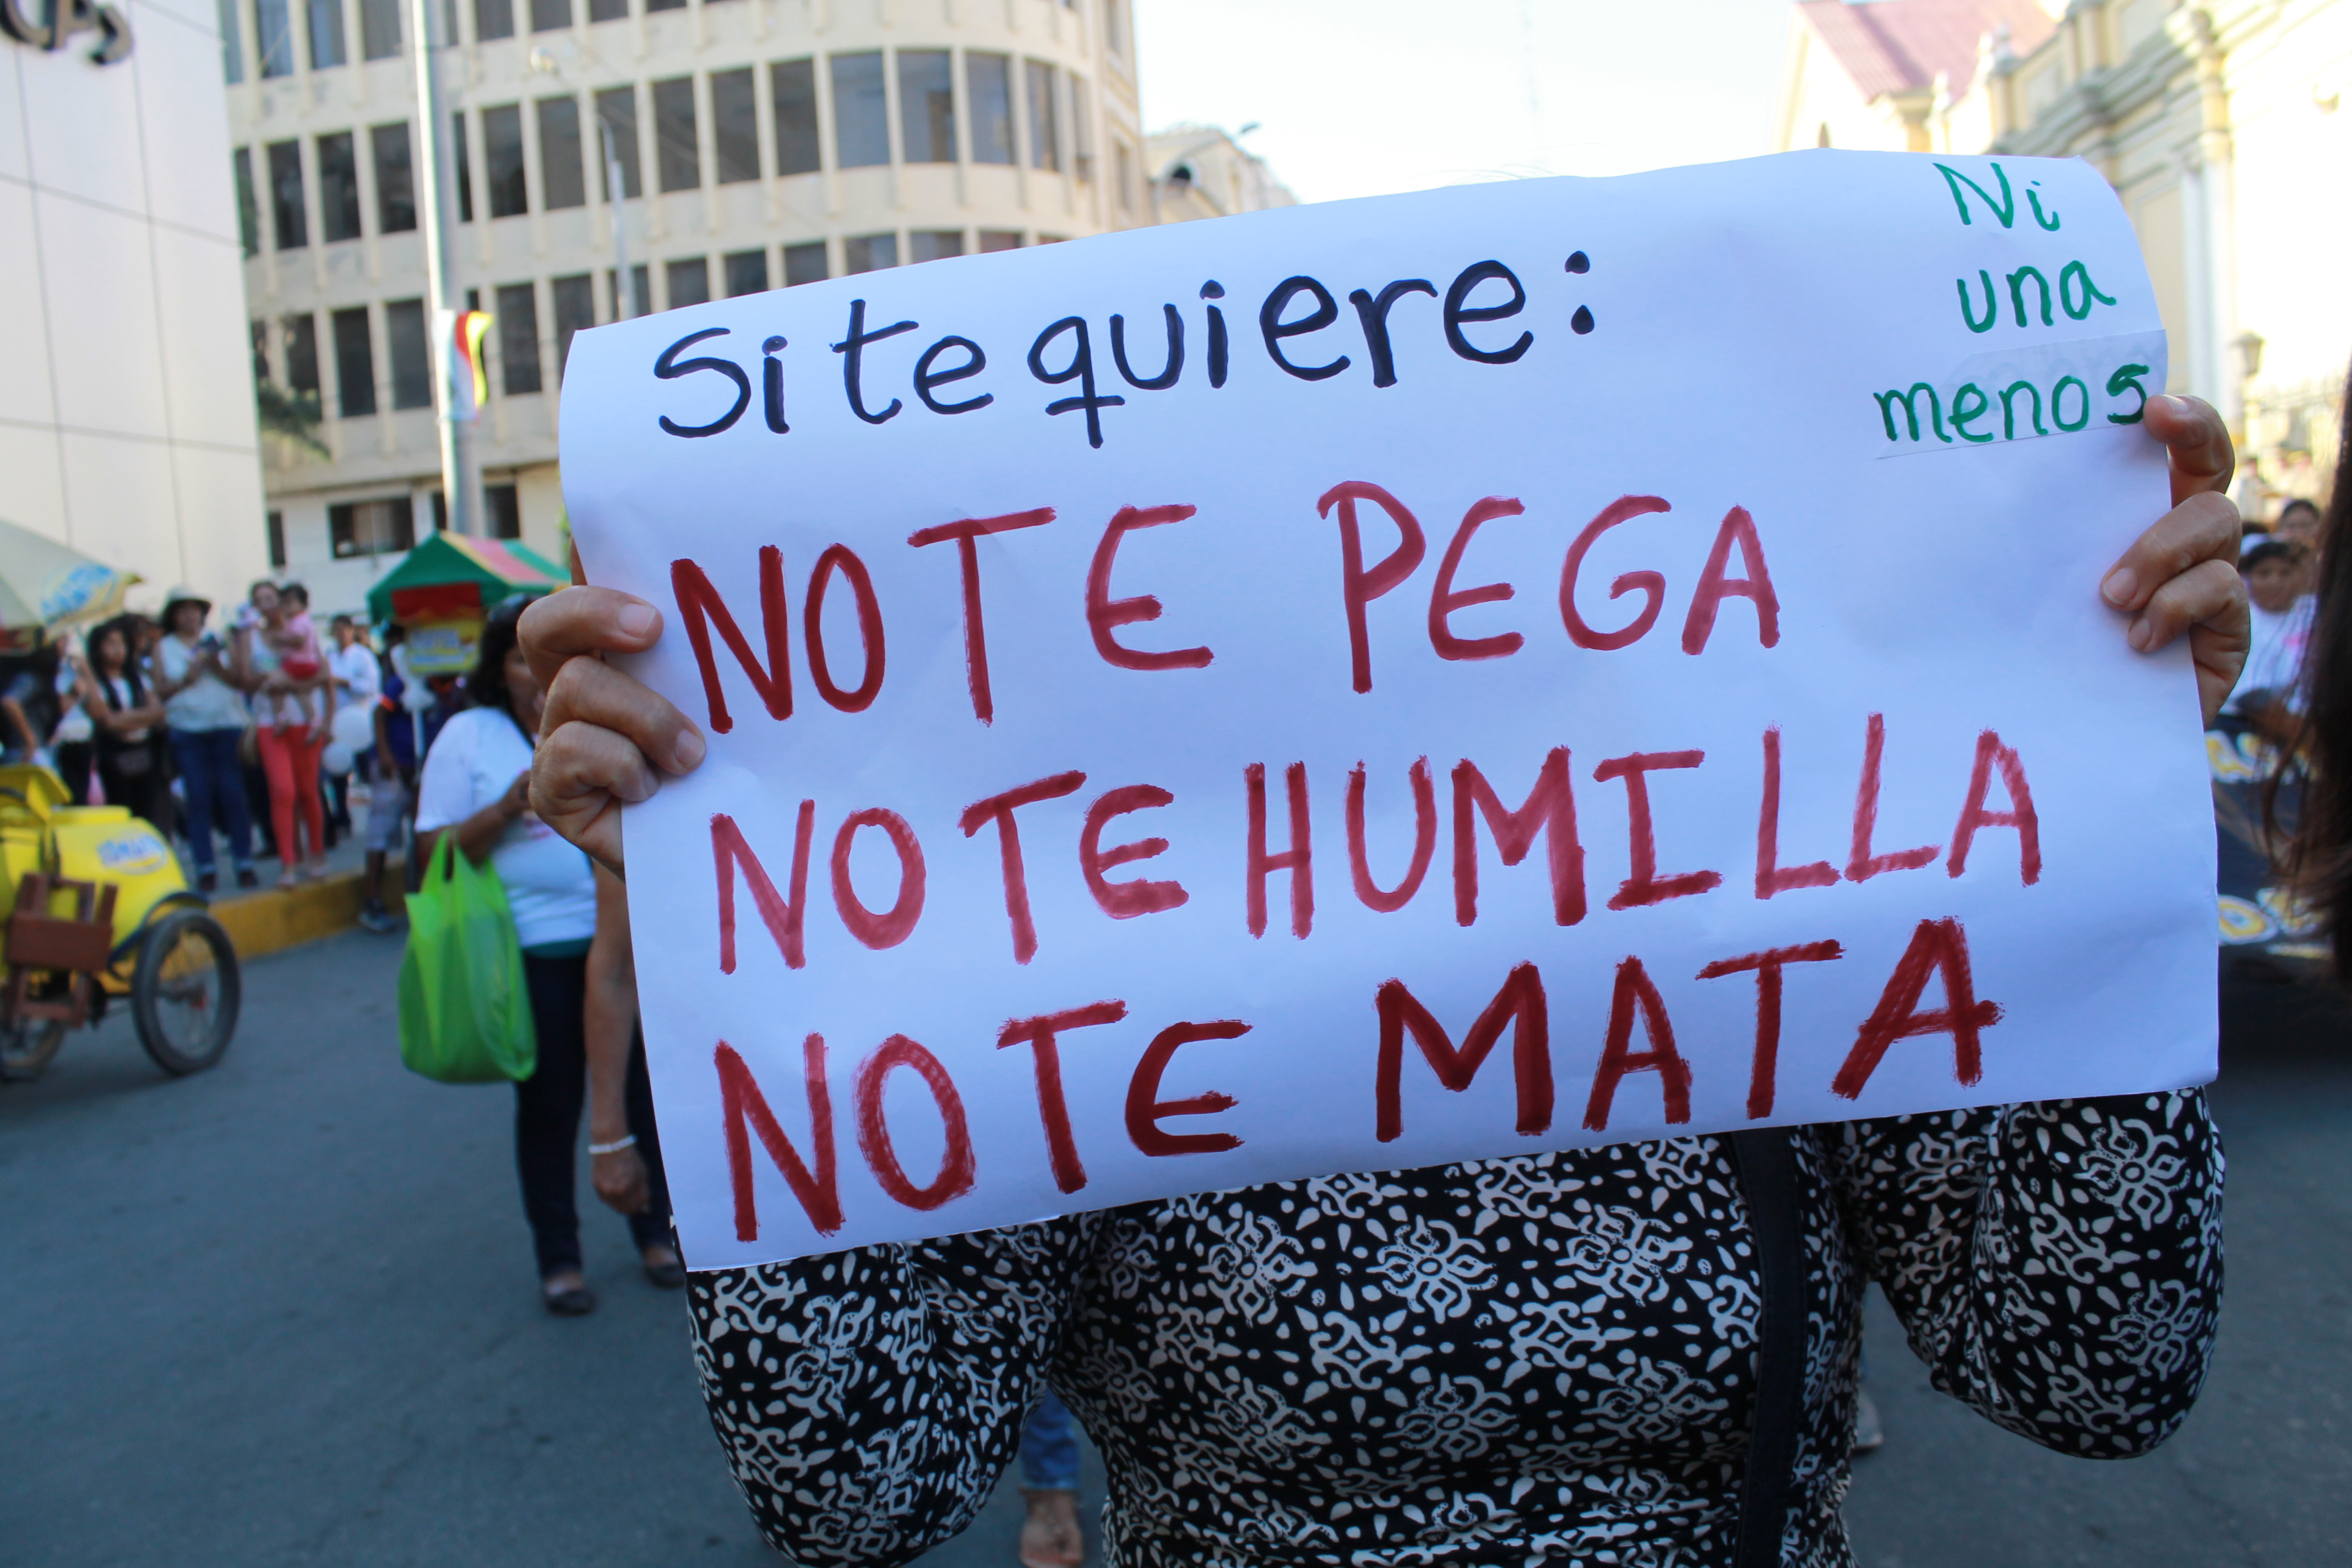 Si te quiere:
Ni
una
menos
NO TE PEGA
NO TE HUMILLA
NO TE MATA